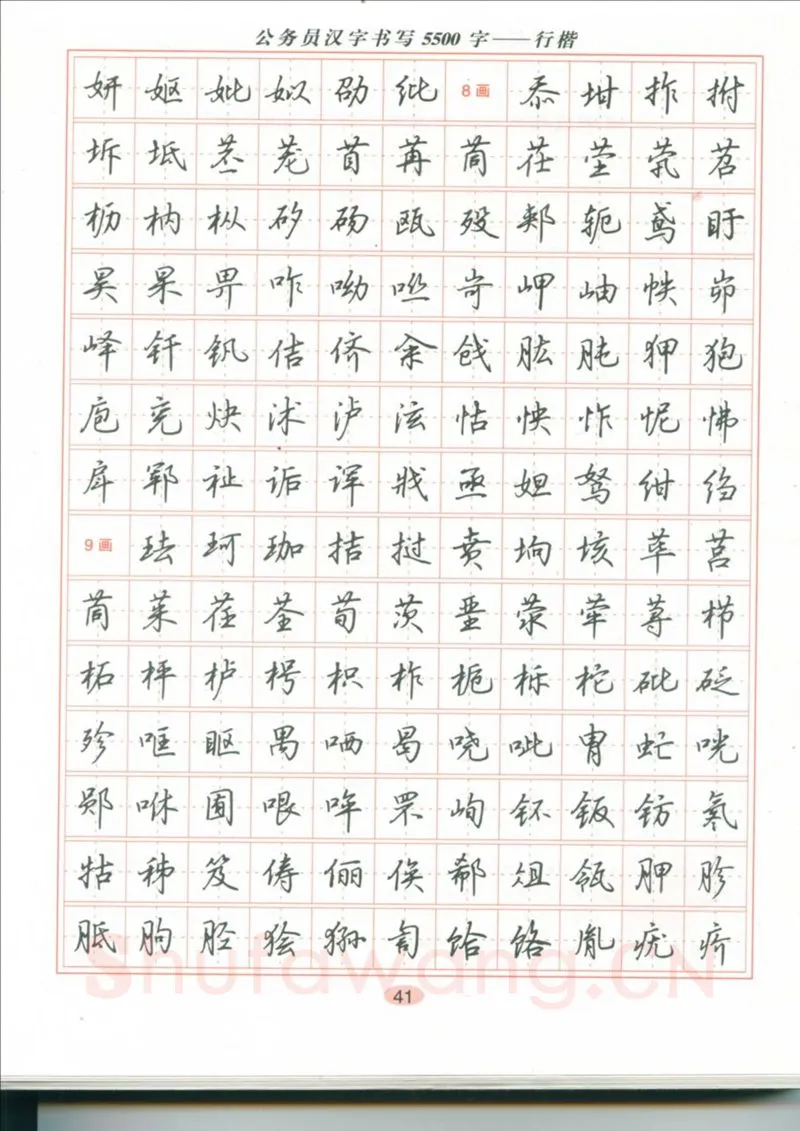 公务员汉字书写5500字——行楷
妍妪妣姒劭纰8画忝坩拃拊
坼坻苤茏苜苒茼茌茔茕茗
枥枘枞矽砀瓯殁郏轭鸢盱
昊杲畀咋呦咝岢岬岫帙峁
峄钎钒佶侪余饯肱肫狎狍
庖兖炔沭泸泫怙怏怍怩怫
戽郓祉诟诨戕亟妲驽绀绉
9画珐珂珈拮挞贲垧垓荜莒
茼茱荏荃荀茨垩荥荦荨栉
柘枰栌枵枳柞栀栎柁砒砭
殄哐眍禺哂曷哓吡胄虻咣
郧咻囿哏哞罘峋钚钣钫氡
牯秭笈俦俪俟郗俎瓴胛胗
胝朐胫狯狲訇饴饹胤疣疥
41
shufawang.CN